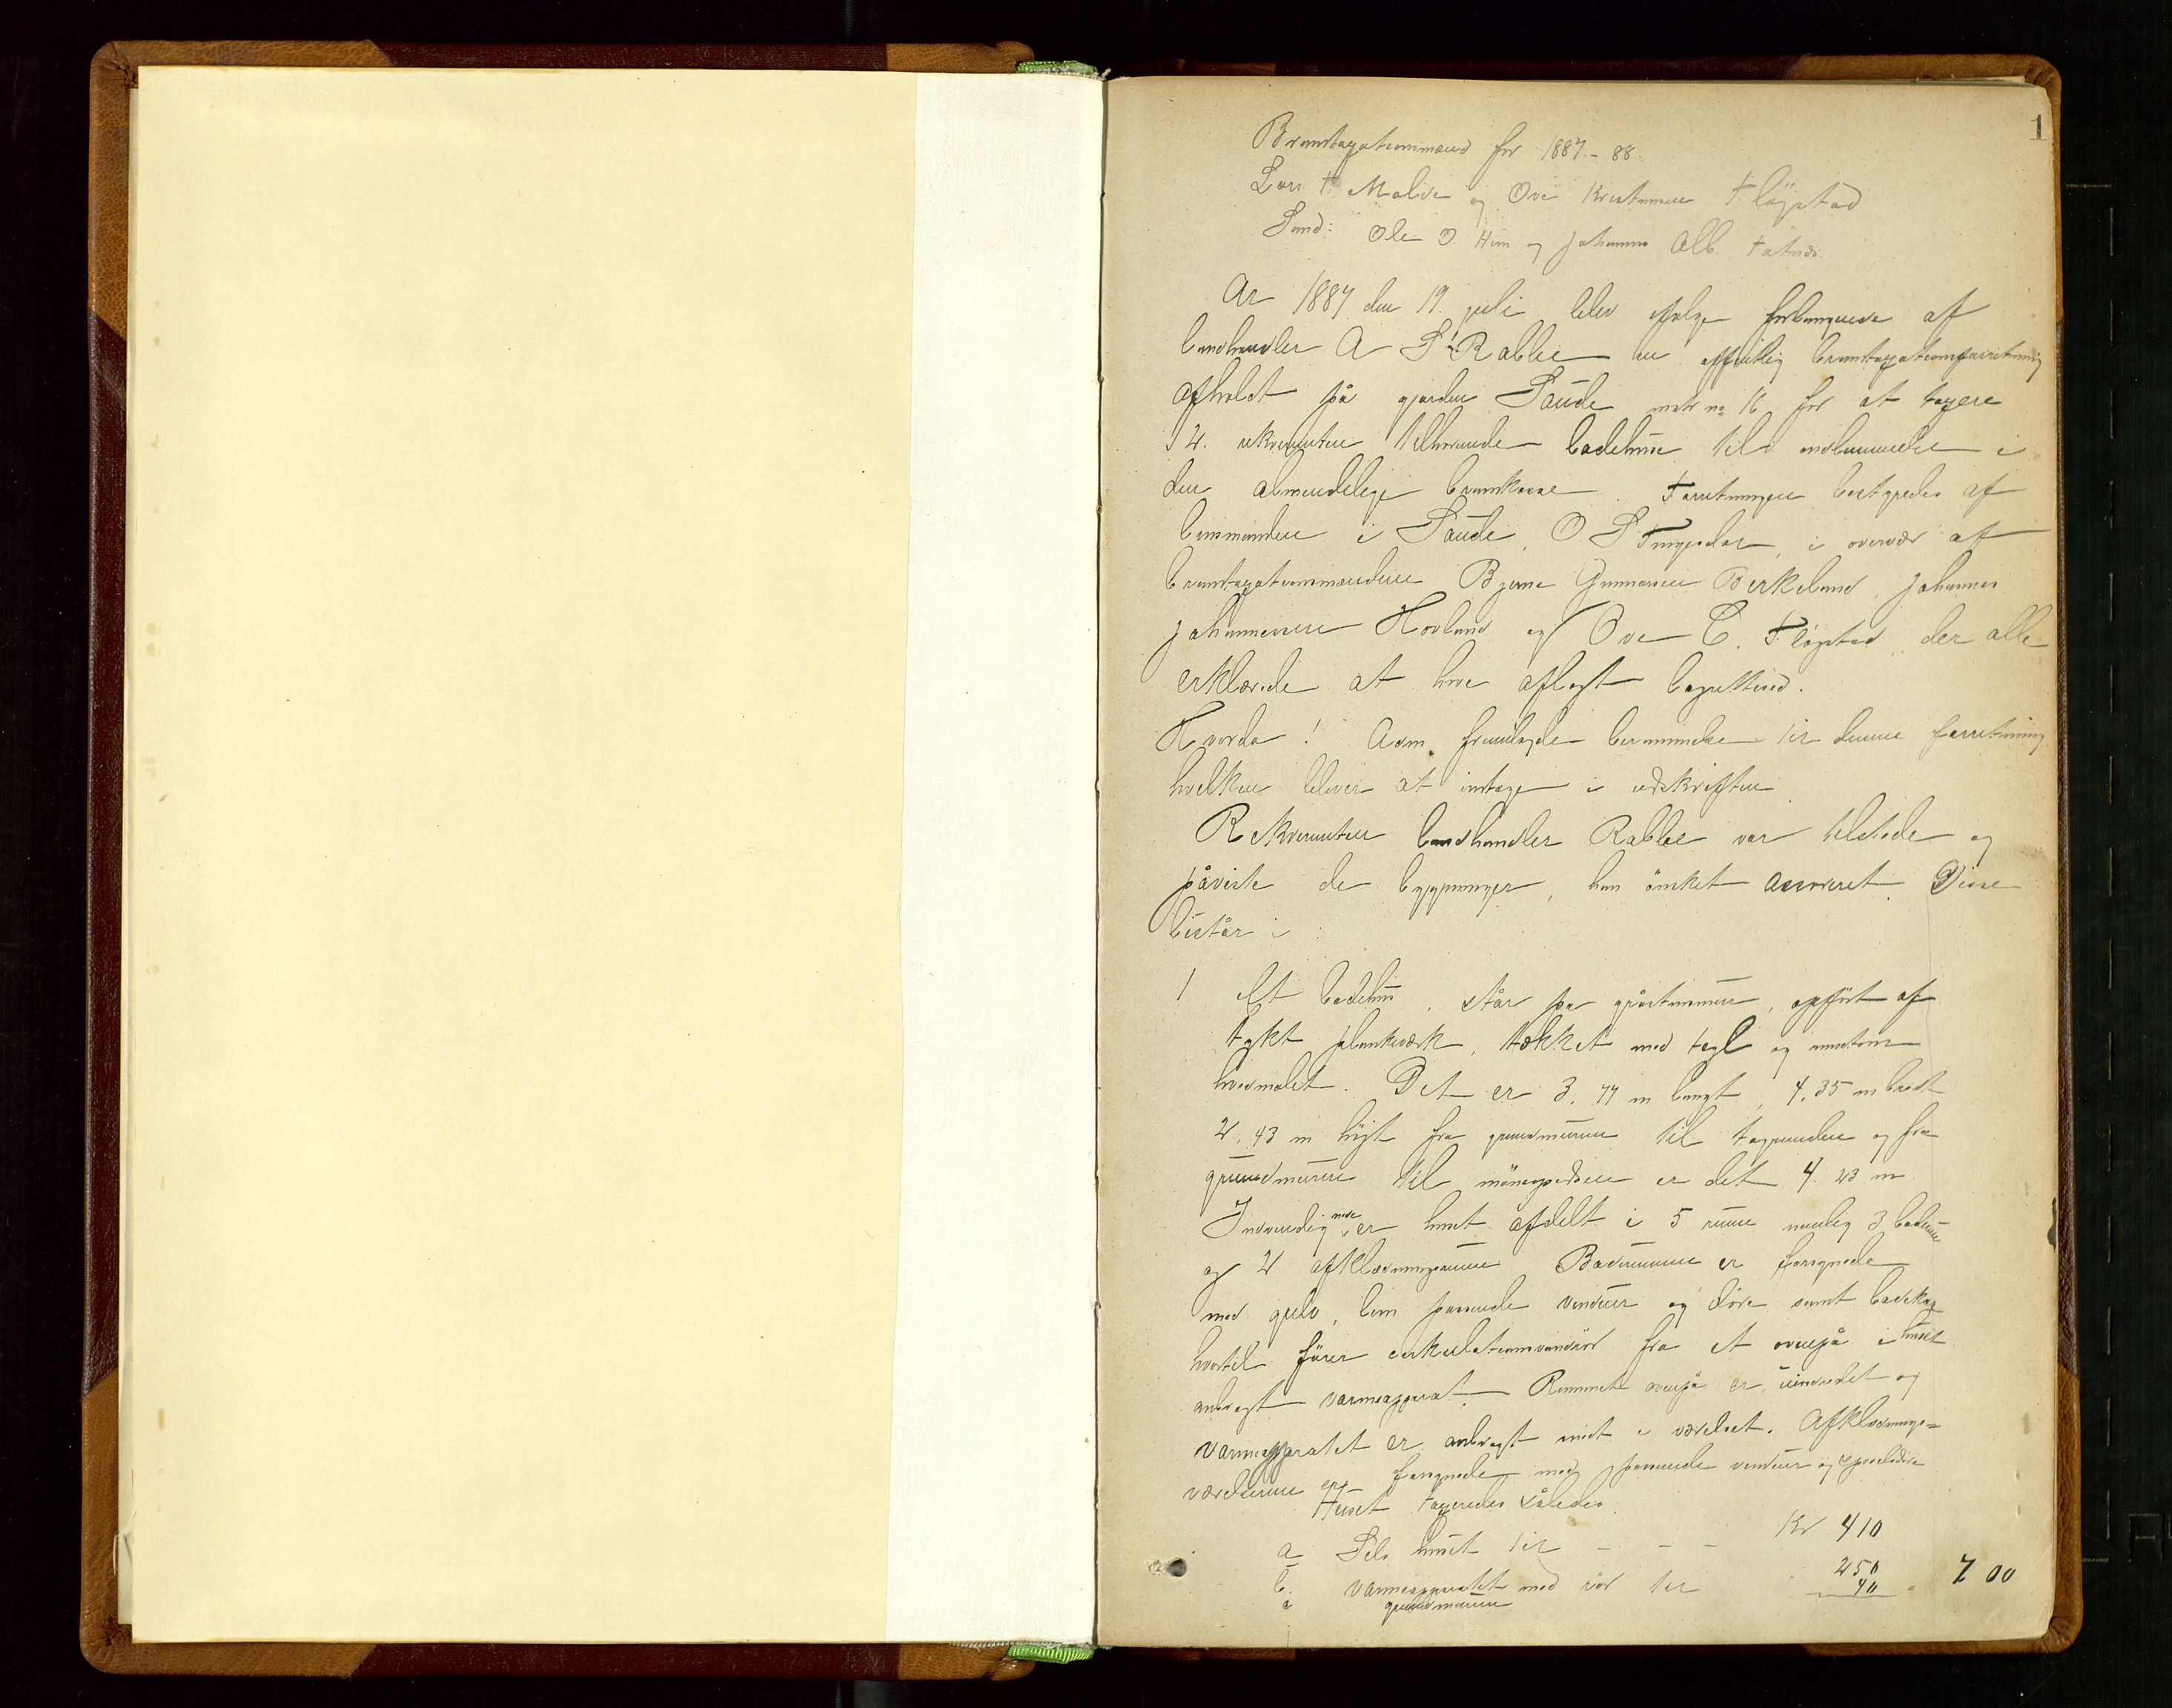 1
Brandtaxationsmænd for 1887-88.
Lars T. Molde og Ove Kristensen Fløgstad
Sand: Ole O. Hiim og Johannes Alb. Fatnæs.
Ar 1887 den 19. juli blev ifølge forlangende af
landhandler A S Rabbe en offentlig brandtaxationsforretning
afholdt på gården Saude matr no 16 for at taxere
2. rekvirenten tilhørende badehuse til indlemmelse i
den almindelige brankasse. Forretningen bestyredes af
lensmanden i Saude, O. S. i overvær af
brandtaxationsmændene Bjerne Gunnarsen Birkeland Johannes
Johannessen Hovland og Ove C. Fløgstad, der alle
erklærede at have aflagt lagretteed.
Hvorda! Adm. fremlagde berammelse til denne forretning
hvilken bliver at indtage i udskriften
Rekvirenten landhandler Rabbe var tilstede og
påviste de bygninger, han ønsket assureret. Disse
består i:
1 Et badehus, står på gråstensmur, opført af
tykt plankeværk, tækket med tegl og
hvidmalet. Det er 3.77 m langt, 4.35 m bredt
2.43 m høit fra grundmuren til tagrenden og fra
grundmuren til mønespidsen er det 4.23 m
Indvendig nede er huset afdelt i 5 rum nemlig 3 baderum
og 2 afklædningsrum Baderummene er forsynede
med gulv, lem passende vinduer og døre samt badekar
hvortil fører cirkulationsvandrør fra et ovenpå i huset
anbragt varmeapparat. Rummet ovenpå er uindredet og
varmeapparatet er anbragt midt i værelset. Afklædnings=
værelserne er forsynede med passende vinduer og speildøre
Huset taxeredes således:
a Selv huset til - - - Kr 410
b. varmeapparatet med rør til 250
c grundmuren 40 700